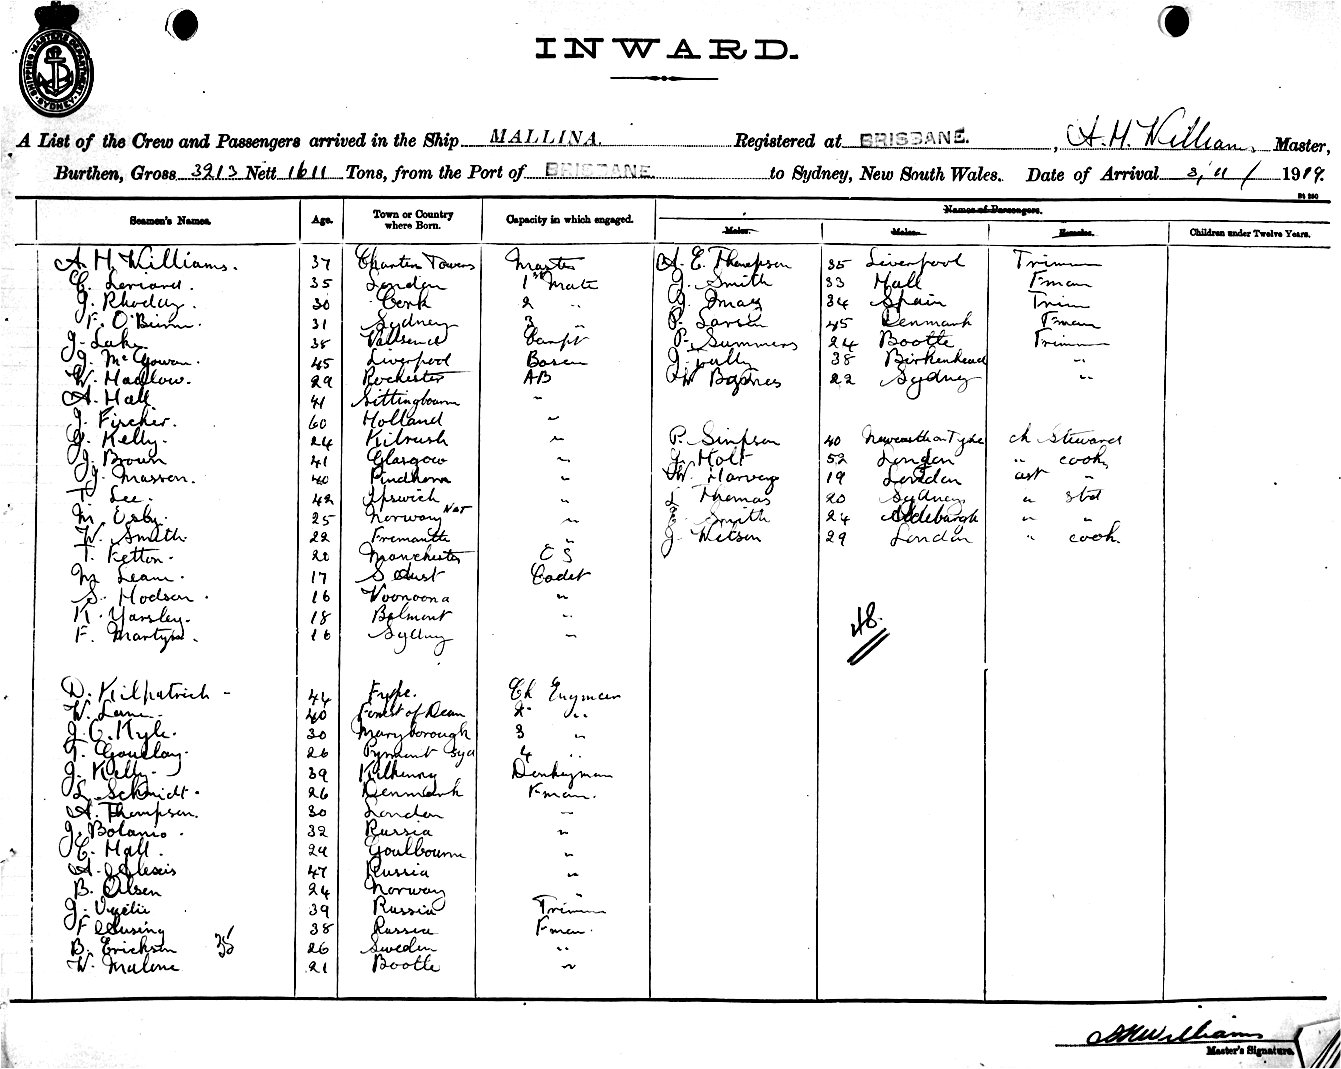 INWARD.
SHIPPING MASTERS DEPARTMENT SYDNEY
A List of the Crew and Passengers arrived in the Ship MALLINA. Registered at BRISBANE. , A. H. Williams, Master,
Burthen, Gross 3213 Nett 1611 Tons, from the Port of BRISBANE to Sydney, New South Wales. Date of Arrival 3/11/ 1919.
Seamen's Names. Age. Town or Country where Born. Capacity in which engaged. Names of Passengers.
Males. Males. Females. Children under Twelve Years.
A. H. Williams. 37 Charten Towers Master A. E. Thompson 35 Liverpool Trimm
35 London 1st Mate J. Smith 33 Hull Fman
J. Rhoday. 30 Cork 2 " 34 Spain Trim
31 Sydney 3 " P. Larsen 45 Denmark Fman
J. Lake 38 Carpt P. Summers 24 Bootle Trimm
J. McGowan. 45 Liverpool Bosun 38 Birkenhead "
W. Hadlow. 29 Rochester AB W Barnes 22 Sydney "
A. Hall 41 Sittingbourn "
J. Fircher. 60 Holland "
J. Kelly. 24 Kilrush " P. Simpson 40 Newcastle on Tyne Ch Steward
J. Brown 41 Glasgow " J. Holt 52 London " cook
J. Masson. 40 Findhorn " W. Harvey 19 London ast "
T. Lee. 42 Ipswich " L Thomas 20 Sydney " std
M. Esby. 25 Norway Nat " Smith 24 Aldeburgh " "
W. Smith 22 Fremantle " J. Watson 29 London " cook
T. Fetton. Manchester OS
M. Leam. 17 Cadet
S. Hodson. 16 Woonoona "
K. Yarsley. 18 Belmont "
F. Martyn. 16 Sydney "
48.
D. Kilpatrick - 44 Fyfe. Ch Engineer
40 Forest of Dean 2 "
J. C. Kyle. 30 Maryborough 3 "
T. Gourlay. 26 Pyrmont Syd 4 "
J. Kelly. 39 Kilkenny Donkeyman
L. Schmidt. 26 Denmark Fman.
A. Thompson. 30 London "
J. Bolanio. 32 Russia "
C. Hall. 29 Goulbourn "
A. Alexis 47 Russia "
B. Olsen 24 Norway "
39 Russia Trimm
38 Russia Fman.
B. Erickson 35 26 Sweden "
W. Malone 21 Bootle "
A H Williams
Master's Signature.